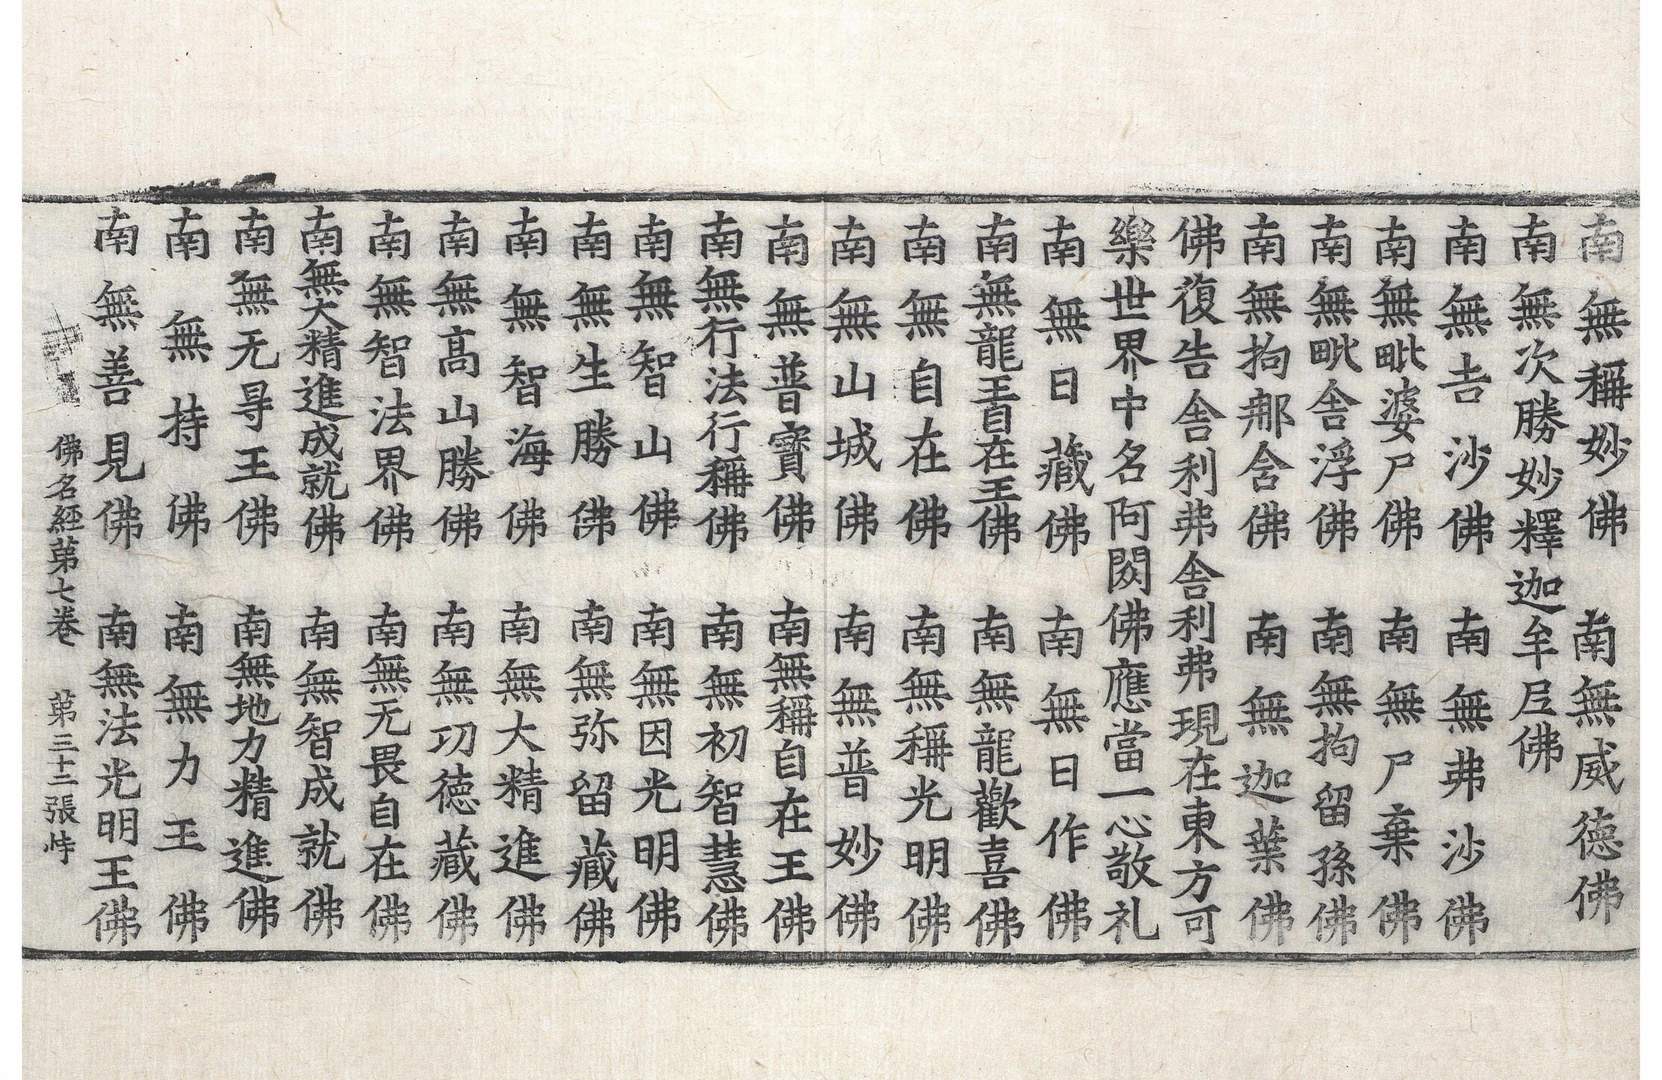 南無稱妙佛　南無威德佛
南無次勝妙釋迦牟尼佛
南無吉沙佛　南無弗沙佛
南無毗婆尸佛　南無尸棄佛
南無毗舍浮佛　南無拘留孫佛
南無拘那舍佛　南無迦葉佛
佛復告舍利弗舍利弗現在東方可
樂世界中名阿閦佛應當一心敬礼
南無日藏佛　南無日作佛
南無龍王自在王佛　南無龍歡喜佛
南無自在佛　南無稱光明佛
南無山城佛　南無普妙佛
南無普寶佛　南無稱自在王佛
南無行法行稱佛　南無初智慧佛
南無智山佛　南無因光明佛
南無生勝佛　南無弥留藏佛
南無智海佛　南無大精進佛
南無高山勝佛　南無功德藏佛
南無智法界佛　南無无畏自在佛
南無大精進成就佛　南無智成就佛
南無无㝵王佛　南無地力精進佛
南無持佛　南無力王佛
南無善見佛　南無法光明王佛
佛名經第七卷　第三十二張　恃